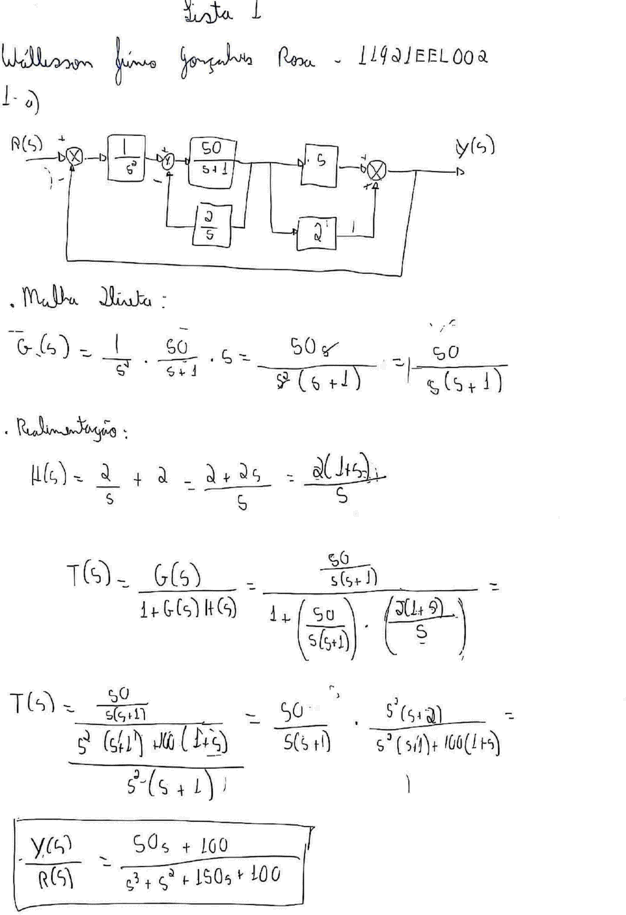 Lista 1
Wállisson Júnio Gonçalves Rosa - 11921EEL002
1- a)
R(s) + - X 1/s² + - X 50/(s+1) s + + X Y(s)
2/s 2
. Malha Direta:
G(s) = 1/s² · 50/(s+1) · s = 50s/(s²(s+1)) = 50/(s(s+1))
. Realimentação:
H(s) = 2/s + 2 = (2+2s)/s = 2(1+s)/s
T(s) = G(s)/(1+G(s)H(s)) = (50/(s(s+1)))/(1+(50/(s(s+1)))·(2(1+s)/s)) =
T(s) = (50/(s(s+1)))/((s²(s+1)+100(1+s))/(s²(s+1))) = 50/(s(s+1)) · s²(s+2)/(s²(s+1)+100(1+s)) =
Y(s)/R(s) = (50s+100)/(s³+s²+150s+100)